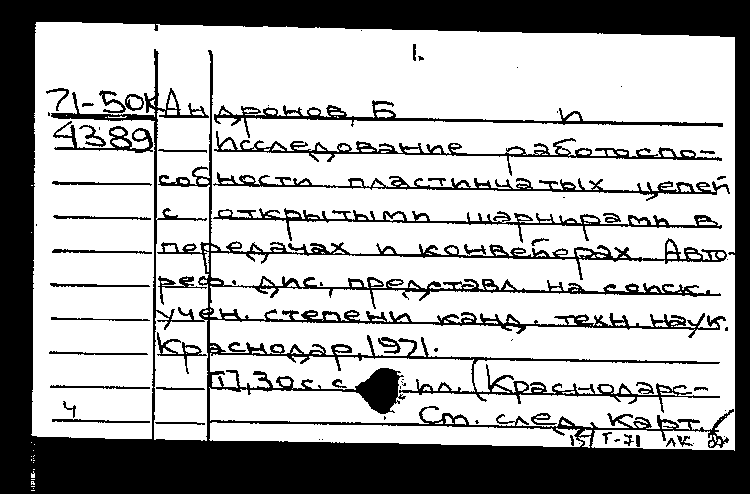 1.
71-50К Андронов, Б И
4389 Исследование работоспо-
собности пластинчатых цепей
с открытыми шарнирами в
передачах и конвейерах. Авто-
реф. дис., представл. на соиск.
учен. степени канд. техн. наук.
Краснодар, 1971.
[1], 30 с. с ил. (Краснодарс-
4 См. след. карт.
15/I-71